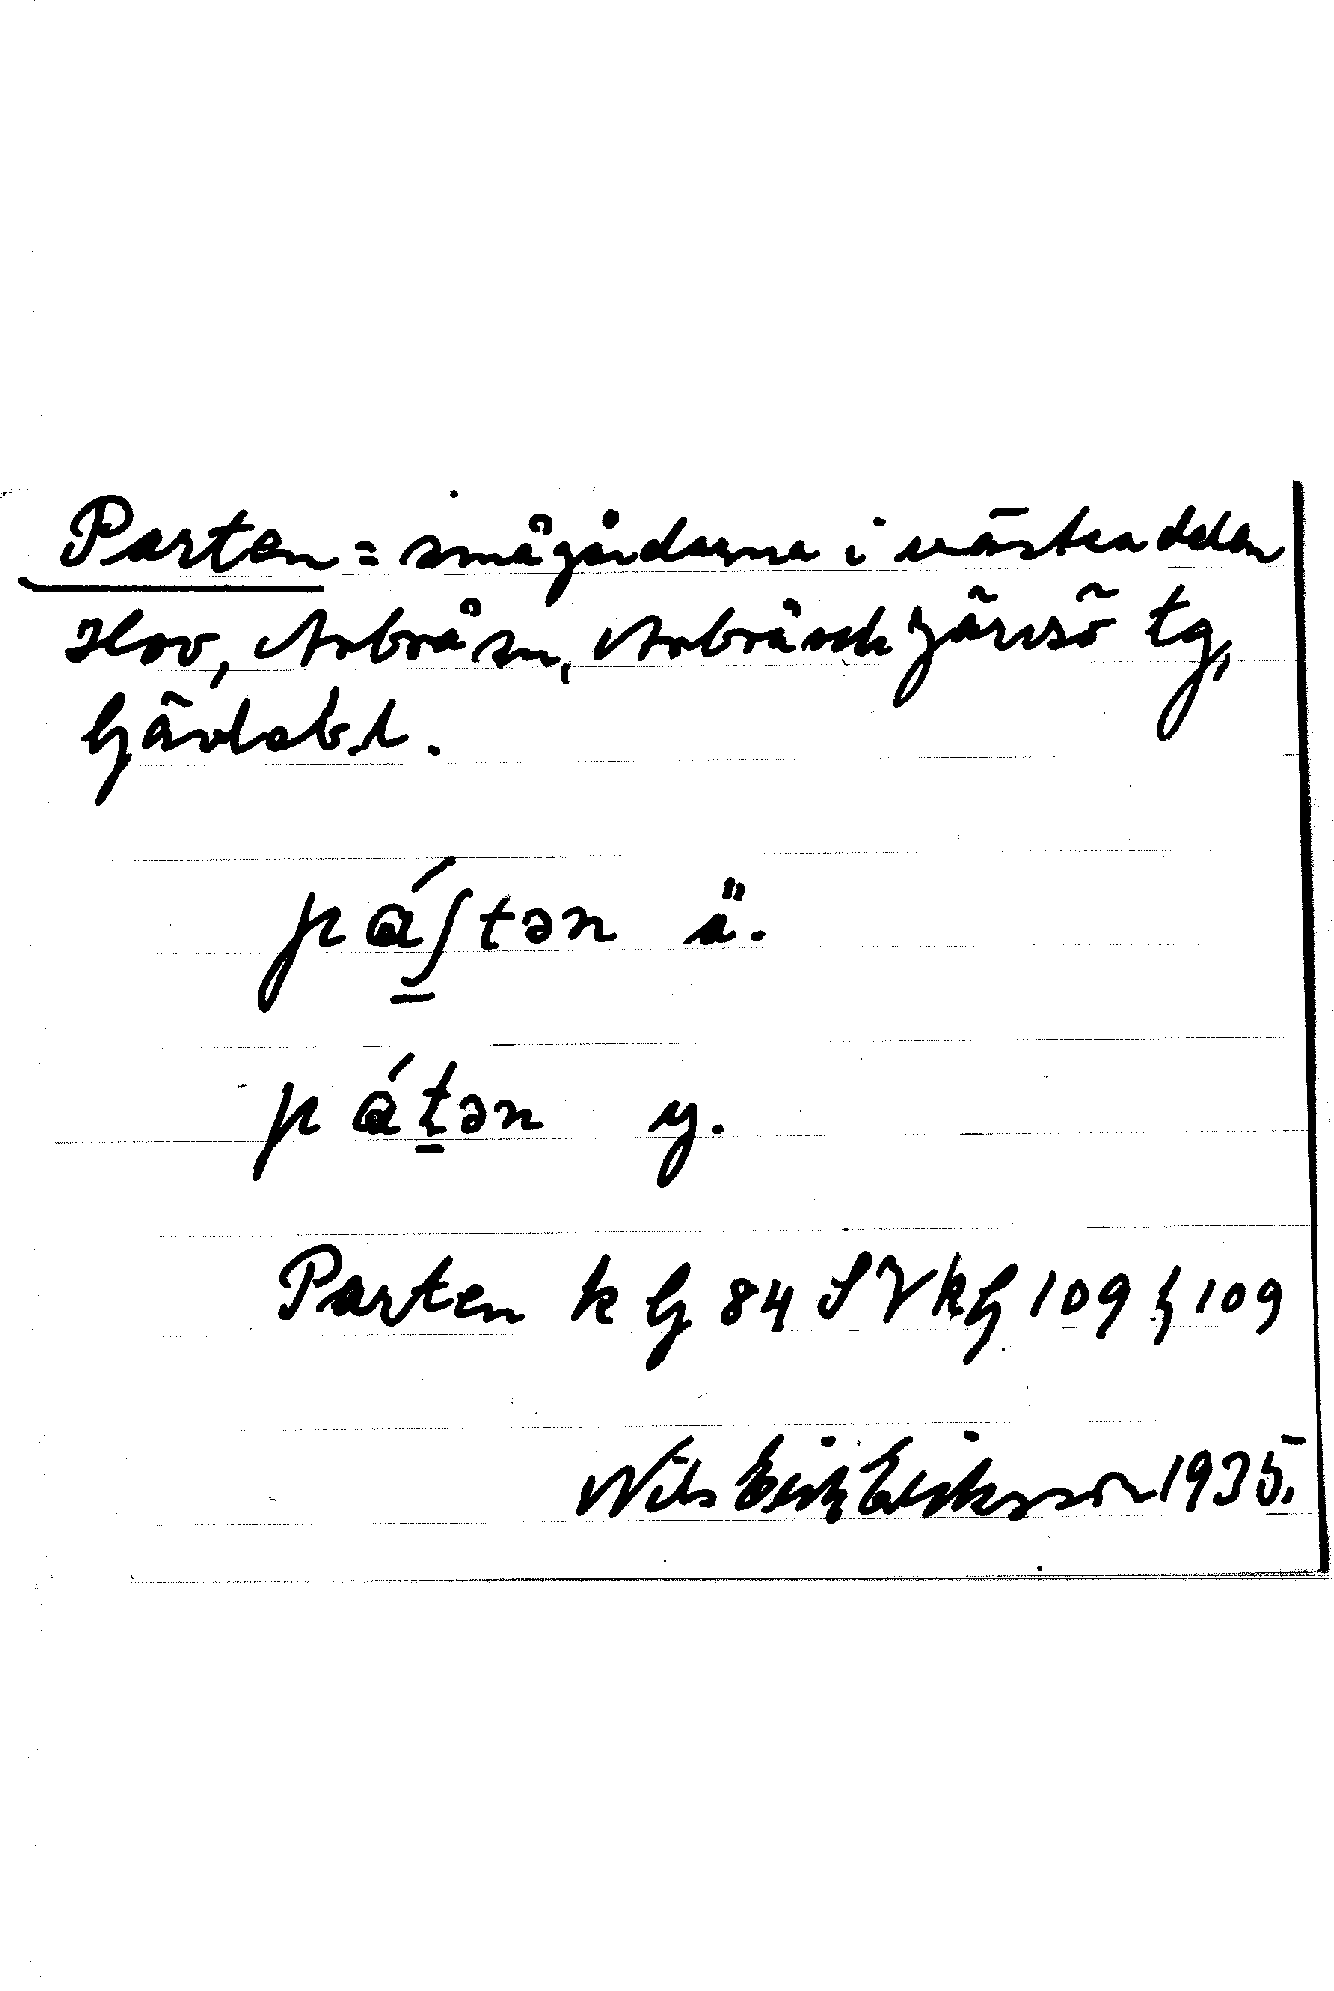 Parten = smågårdarna i västra delen
Hov, Arbrå sn, Arbrå och Järvsö tg,
Gävlebl.
påʃtən ä.
påtən y.
Parten k G 84 S V k G 109 § 109
Nils Erik Eriksson 1935.